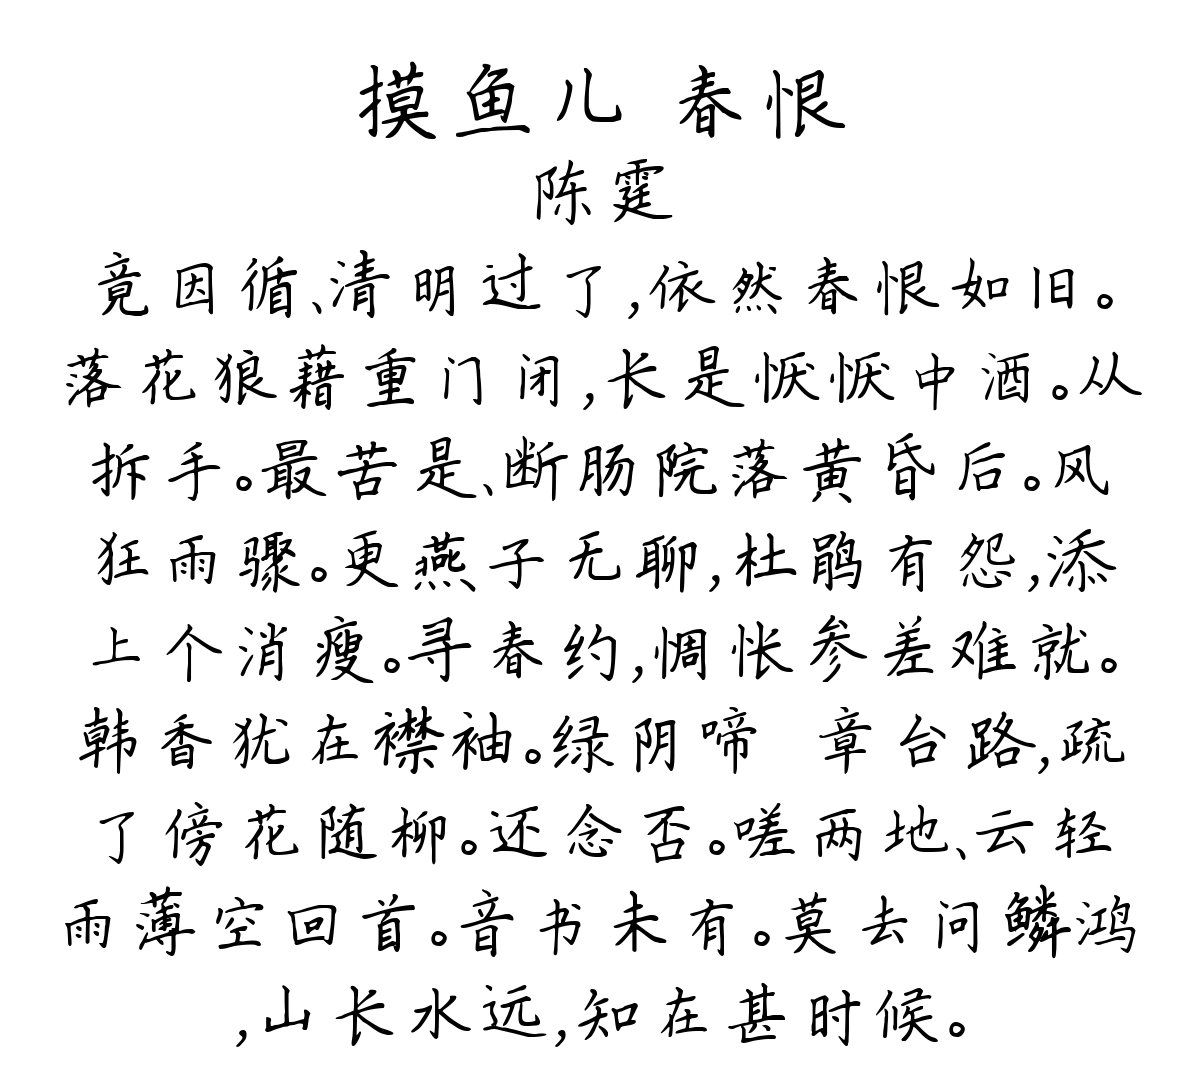 摸鱼儿 春恨
陈霆
竟因循、清明过了,依然春恨如旧。
落花狼藉重门闭,长是恹恹中酒。从
拆手。最苦是、断肠院落黄昏后。风
狂雨骤。更燕子无聊,杜鹃有怨,添
上个消瘦。寻春约,惆怅参差难就。
韩香犹在襟袖。绿阴啼 章台路,疏
了傍花随柳。还念否。嗟两地、云轻
雨薄空回首。音书未有。莫去问鳞鸿
,山长水远,知在甚时候。